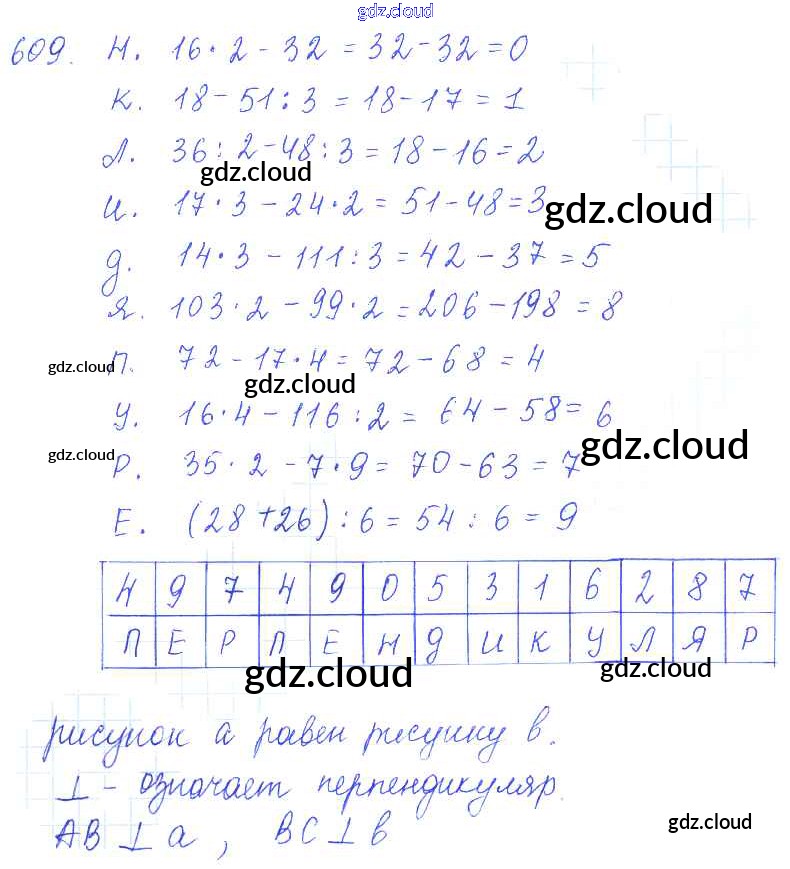 gdz.cloud
gdz.cloud
609. Н. 16·2 - 32 = 32 - 32 = 0
К. 18 - 51 : 3 = 18 - 17 = 1
Л. 36 : 2 - 48 : 3 = 18 - 16 = 2
gdz.cloud
И. 17·3 - 24·2 = 51 - 48 = 3
gdz.cloud
Д. 14·3 - 111 : 3 = 42 - 37 = 5
Я. 103·2 - 99·2 = 206 - 198 = 8
gdz.cloud
П. 72 - 17·4 = 72 - 68 = 4
gdz.cloud
У. 16·4 - 116 : 2 = 64 - 58 = 6
gdz.cloud
gdz.cloud
Р. 35·2 - 7·9 = 70 - 63 = 7
Е. (28 + 26) : 6 = 54 : 6 = 9
4 9 7 4 9 0 5 3 1 6 2 8 7
П Е Р П Е Н Д И К У Л Я Р
gdz.cloud
gdz.cloud
рисунок а равен рисунку в.
⊥ - означает перпендикуляр.
АВ ⊥ а, ВС ⊥ в
gdz.cloud